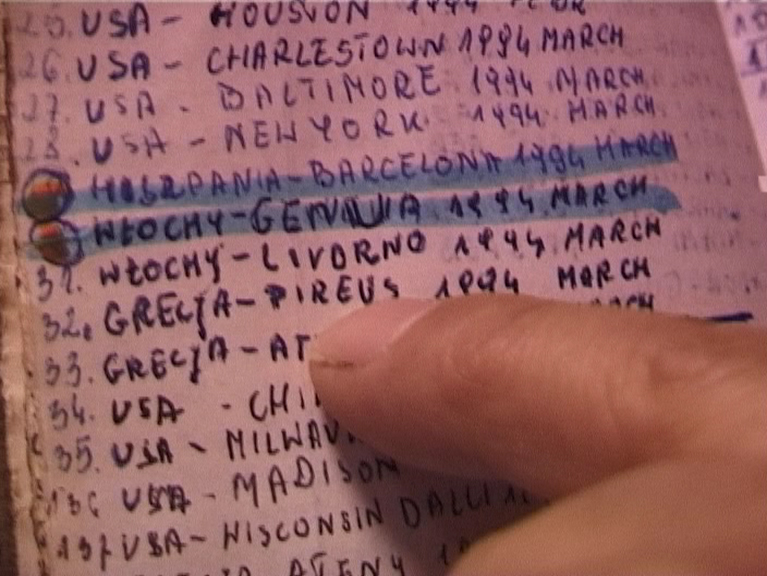 25. USA - HOUSTON 1994
26. USA - CHARLESTOWN 1994 MARCH
27. USA - BALTIMORE 1994 MARCH
28. USA - NEW YORK 1994 MARCH
HISZPANIA - BARCELONA 1994 MARCH
WŁOCHY - GENUA 1994 MARCH
31. WŁOCHY - LIVORNO 1994 MARCH
32. GRECJA - PIREUS 1994 MARCH
33. GRECJA - AT MARCH
34. USA - CHI
35. USA - MILWAU
136 USA - MADISON
137 USA - WISCONSIN
ATENY